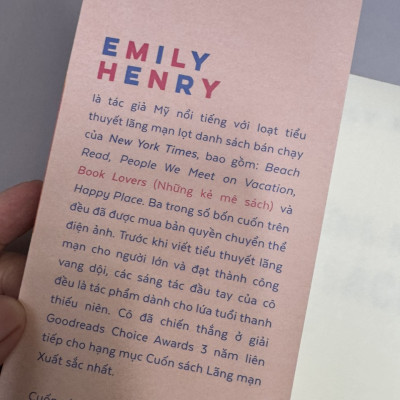 EMILY
HENRY
là tác giả Mỹ nổi tiếng với loạt tiểu
thuyết lãng mạn lọt danh sách bán chạy
của New York Times, bao gồm: Beach
Read, People We Meet on Vacation,
Book Lovers (Những kẻ mê sách) và
Happy Place. Ba trong số bốn cuốn trên
đều đã được mua bản quyền chuyển thể
điện ảnh. Trước khi viết tiểu thuyết lãng
mạn cho người lớn và đạt thành công
vang dội, các sáng tác đầu tay của cô
đều là tác phẩm dành cho lứa tuổi thanh
thiếu niên. Cô đã chiến thắng ở giải
Goodreads Choice Awards 3 năm liên
tiếp cho hạng mục Cuốn sách Lãng mạn
Xuất sắc nhất.